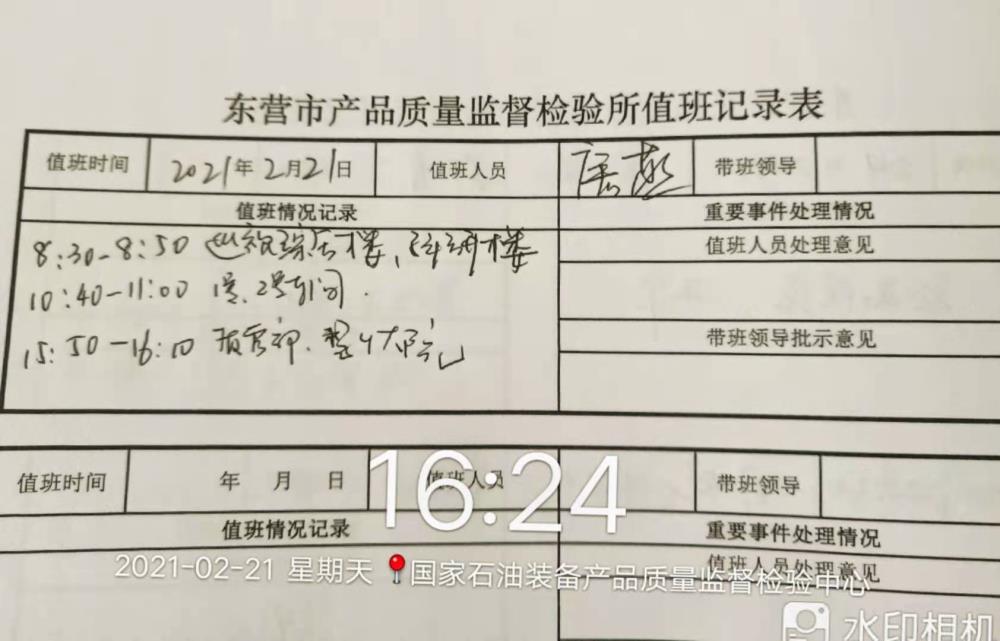 东营市产品质量监督检验所值班记录表
值班时间 2021年2月21日 值班人员 燕 带班领导
值班情况记录 重要事件处理情况
8:30-8:50 巡视综合楼、科研楼
值班人员处理意见
10:40-11:00 1号、2号车间.
带班领导批示意见
15:50-16:10
值班时间 年 月 日 值班人员 带班领导
16:24
值班情况记录 重要事件处理情况
值班人员处理意见
2021-02-21 星期天 国家石油装备产品质量监督检验中心
水印相机